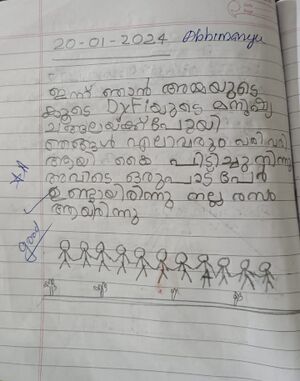 20-01-2024 Abhimanyu
ഇന്ന് ഞാൻ അമ്മയുടെ
കൂടെ DYFIയുടെ മനുഷ്യ
ചങ്ങലയ്ക്ക് പോയി
ഞങ്ങൾ എല്ലാവരും വരി വരി
ആയി കൈ പിടിച്ചു നിന്നു
അവിടെ ഒരുപാട് പേർ
ഉണ്ടായിരിന്നു നല്ല രസം
ആയിരിന്നു
good